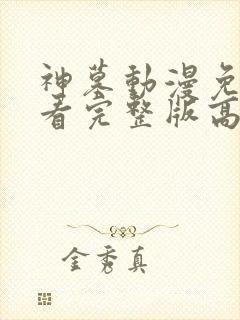 神墓動漫免
看完整版高
金秀真